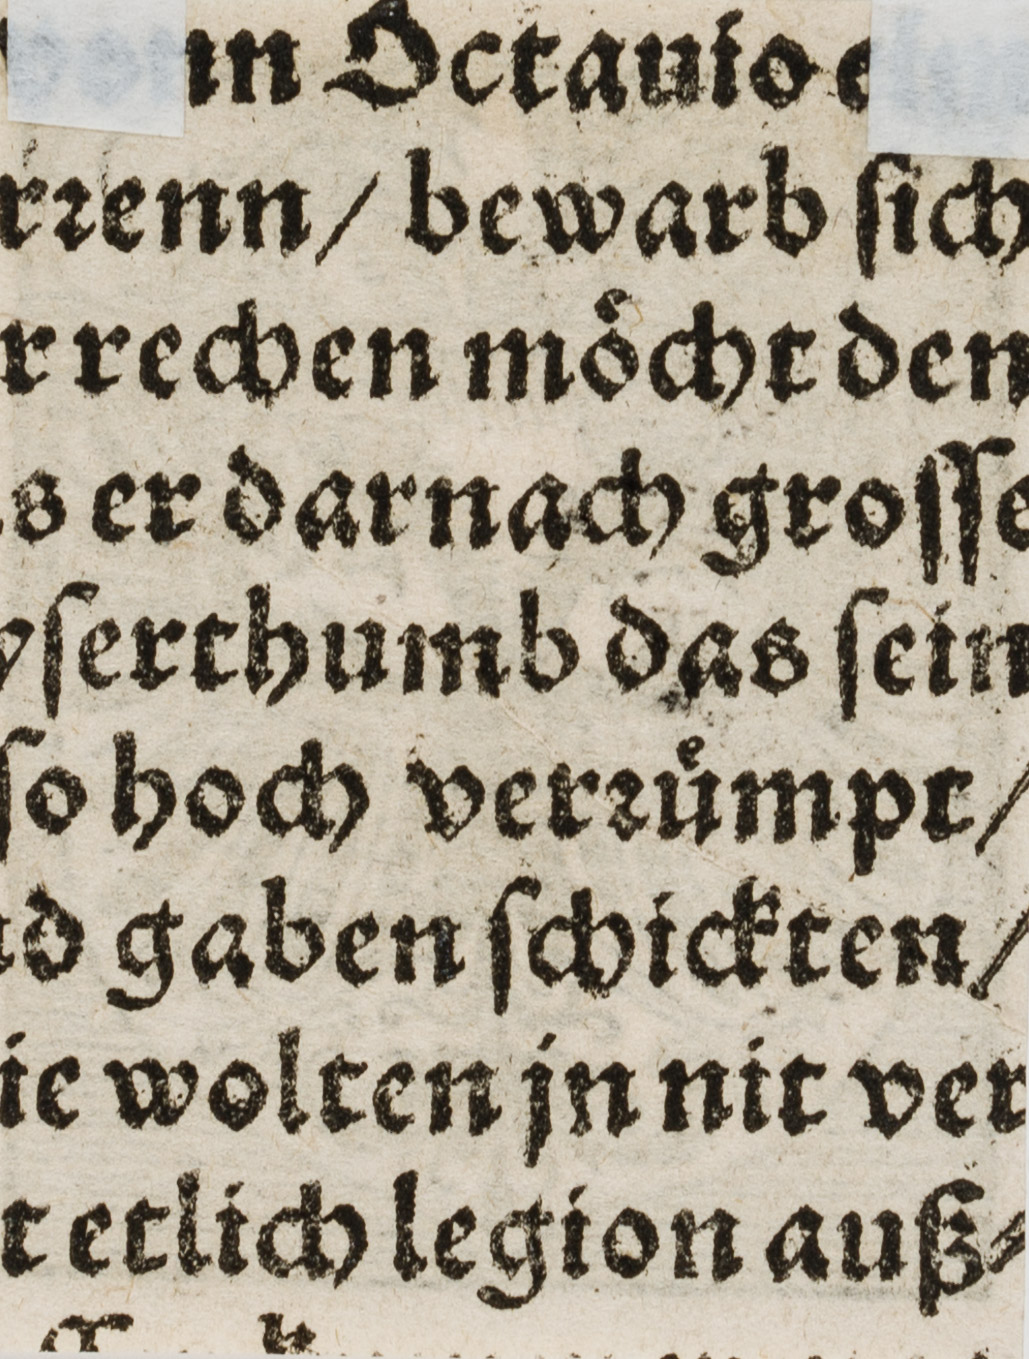 nn Octauio
rrenn/ bewarb sich
r rechen moͤcht den
s er darnach grosse
yserthumb das sein
so hoch verruͤmpt/
d gaben schickten/
ie wolten jn nit ver
t etlich legion auß⸗